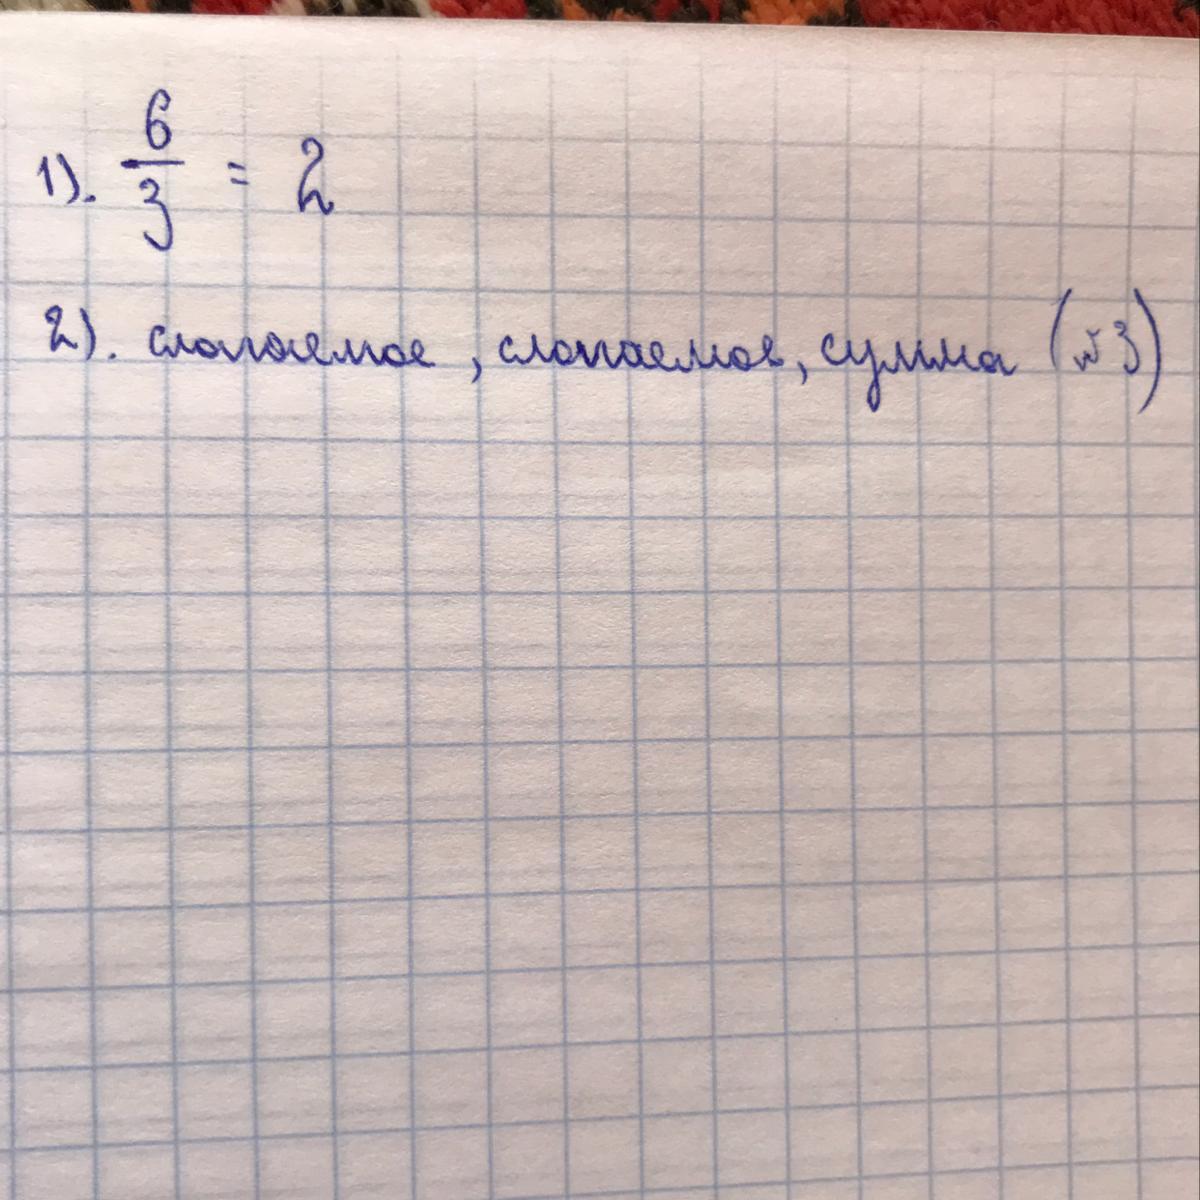 1). 6/3 = 2
2). слагаемое, слагаемое, сумма (№3)